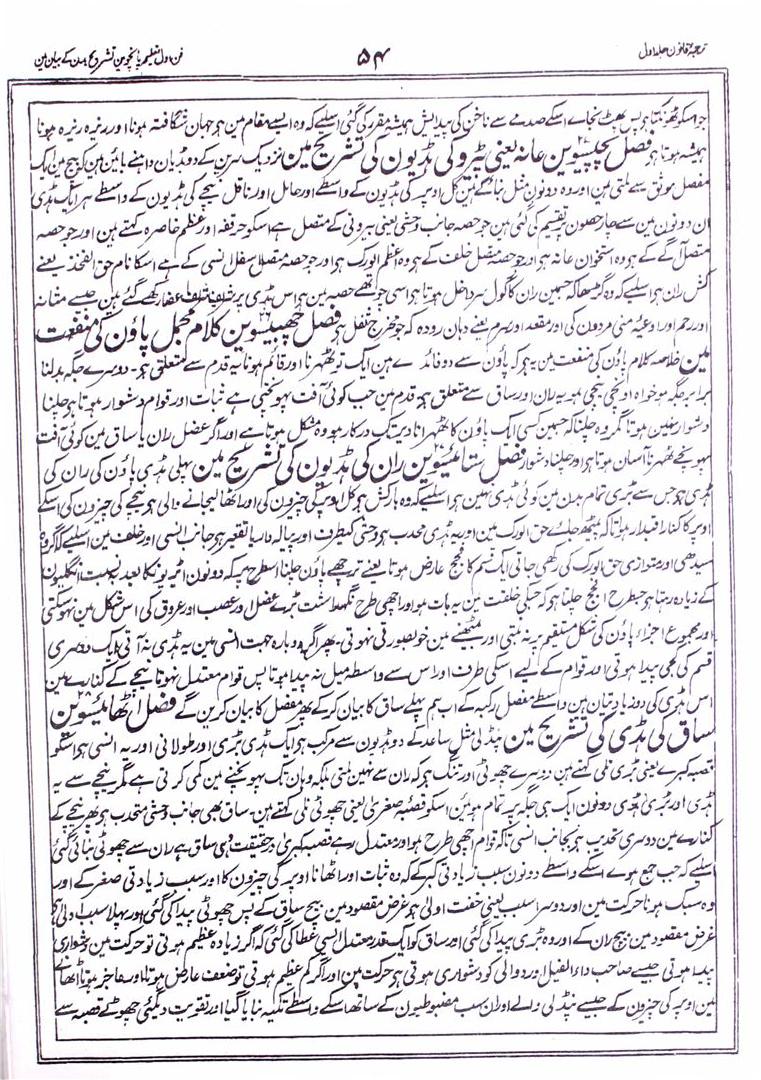 ترجمۂ قانون جلد اول ۵۴ فن اول تعلیم پانچوین تشریح بدن کے بیان مین
جو اسکو ٹھونکتا ہو پس پھٹ نجاے اسکے صدمے سے ناخن کی پیدایش ہمیشہ مقرر کی گئی اسلیے کہ وہ ایسے مقام مین ہو جہان شگافتہ ہونا اور ریزہ ریزہ ہونا
ہمیشہ ہوتا ہو فصل پچیسوین عانہ یعنی پیڑو کی ہڈیون کی تشریح مین نزدیک سرین کے دو ہڈیان داہنے بائین ہین کہ بیچ مین ایک
مفصل موثق سے ملتی ہین اور وہ دونون مثل بنیاد کے ہین کل اوپر کی ہڈیون کے واسطے اور حامل اور ناقل نیچے کی ہڈیون کے واسطے ہر ایک ہڈی
ان دونون مین سے چار حصون پر تقسیم کی گئی ہین جو حصہ جانب وحشی یعنی بیرونی کے متصل ہے اسکو حرقفہ اور عظم خاصرہ کہتے ہین اور جو حصہ
متصل آگے کے ہو وہ استخوان عانہ ہو اور جو حصہ متصل خلف کے ہو وہ عظم الورک ہو اور جو حصہ متصل اسفل انسی کے ہے اسکا نام حق الفخذ یعنے
کش ران ہو اسلیے کہ وہ گڑھا کہ جسمین ران کا گول سر داخل ہوتا ہو اسی چوتھے حصہ مین ہو اس ہڈی پر اعضاء رکھے گئے ہین جیسے مثانہ
اور رحم اور اوعیۂ منی مردون کی اور مقعد اور سرم یعنے دہان رودہ کہ جو مخرج ثفل ہو فصل چھبیسوین کلام مجمل پاؤن کی منفعت
مین خلاصہ کلام پاؤن کی منفعت مین یہ ہو کہ پاؤن سے دو فائدے ہین ایک تو ٹھہرنا اور قائم ہونا یہ قدم سے متعلق ہو۔ دوسرے جگہ بدلنا
برابر جگہ ہو خواہ اونچی نیچی ہو یہ ران اور ساق سے متعلق ہو قدم مین جب کوئی آفت پہونچتی ہے ثبات اور قوام دشوار ہوتا ہو چلنا
دشوار نہین ہوتا مگر وہ چلنا کہ جسمین کسی ایک پاؤن کا ٹھہرانا دیر تک درکار ہو وہ مشکل ہوتا ہے اور اگر عضل ران یا ساق مین کوئی آفت
پہونچے ٹھہرنا آسان ہوتا ہو اور چلنا دشوار فصل ستائیسوین ران کی ہڈیون کی تشریح مین پہلی ہڈی پاؤن کی ران کی
ہڈی ہو جس سے بڑی تمام بدن مین کوئی ہڈی نہین ہو اسلیے کہ وہ بارکش ہو کل اوپر کی چیزون کی اور اٹھا لیجانے والی ہو نیچے کی چیزون کی اسکے
اوپر کا کنارا قبہ دار ہوتا کہ بیٹھ جاے حق الورک مین اور یہ ہڈی محدب ہو وحشی کیطرف اور پیالہ دار با تقعیر ہو جانب انسی اور خلف مین اسلیے کہ اگر وہ
سیدھی اور متوازی حق الورک کی رکھی جاتی ایک قسم کا فحج عارض ہوتا یعنے ترچھے پاؤن چلنا اسطرح پر کہ دونون ایڑیونکا بعد بہ نسبت انگلیون
کے زیادہ رہتا ہو جسطرح افحج چلتا ہو کہ جبلی خلقت مین یہ بات ہو اور اچھی طرح نگہداشت بڑے عضل اور عصب اور عروق کی اس شکل مین نہو سکتی
اور مجموع اجزاء پاؤن کی شکل مستقیم پر نہ بنتی اور بیٹھنے مین خوبصورتی نہوتی۔ پھر اگر دوبارہ جہت انسی مین یہ ہڈی نہ آتی ایک دوسری
قسم کی کجی پیدا ہوتی اور قوام کے لیے اسکی طرف اور اس سے واسطہ میل نہ پیدا ہوتا پس قوام معتدل نہوتا نیچے کے کنارے مین
اس ہڈی کی دو زیادتیان ہین واسطے مفصل رکبہ کے اب ہم پہلے ساق کا بیان کر کے پھر مفصل کا بیان کرین گے فصل اٹھائیسوین
ساق کی ہڈی کی تشریح مین پنڈلی مثل ساعد کے دو ہڈیون سے مرکب ہو ایک ہڈی بڑی اور طولانی اور یہ انسی ہو اسکو
قصبہ کبرے یعنی بڑی نلی کہتے ہین دوسرے چھوٹی اور تنگ ہو کہ ران سے نہین ملتی بلکہ وہان تک پہونچنے مین کمی کرتی ہے مگر نیچے سے یہ
ہڈی اور بڑی ہڈی دونون ایک ہی جگہ پر تمام ہوئین اسکو قصبہ صغری یعنی چھوٹی نلی کہتے ہین۔ ساق بھی جانب وحشی متحدب ہو پھر نیچے کے
کنارے مین دوسری تحدیب ہو بجانب انسی تاکہ قوام اچھی طرح ہو اور معتدل رہے قصبہ کبری در حقیقت وہی ساق ہے ران سے چھوٹی بنائی گئی
اسلیے کہ جب جمع ہوے اسکے واسطے دونون سبب زیادتی کبر کے کہ وہ ثبات اور اٹھانا اوپر کی چیزون کا اور سبب زیادتی صغر کے اور
وہ سبک ہونا حرکت مین اور دوسرا سبب یعنی خفت اولی ہو غرض مقصود مین بیچ ساق کے پس چھوٹی پیدا کی گئی اور پہلا سبب اولی ہو
غرض مقصود مین بیچ ران کے اور وہ بڑی پیدا کی گئی اور ساق کو ایک قدر معتدل ایسی عطا کی گئی کہ اگر زیادہ عظیم ہوتی تو حرکت مین دشواری
پیدا ہوتی جیسے صاحب داء الفیل اور دوالی کو دشواری ہوتی ہو حرکت مین اور اگر کم عظیم ہوتی تو ضعف عارض ہوتا اور عاجز ہوتا اٹھانے
مین اوپر کی چیزون کے جیسے پنڈلی والے اور ان سب مضبوطیون کے ساتھ اسکے واسطے تکیہ بنایا گیا اور تقویت دیگئی چھوٹے قصبہ سے